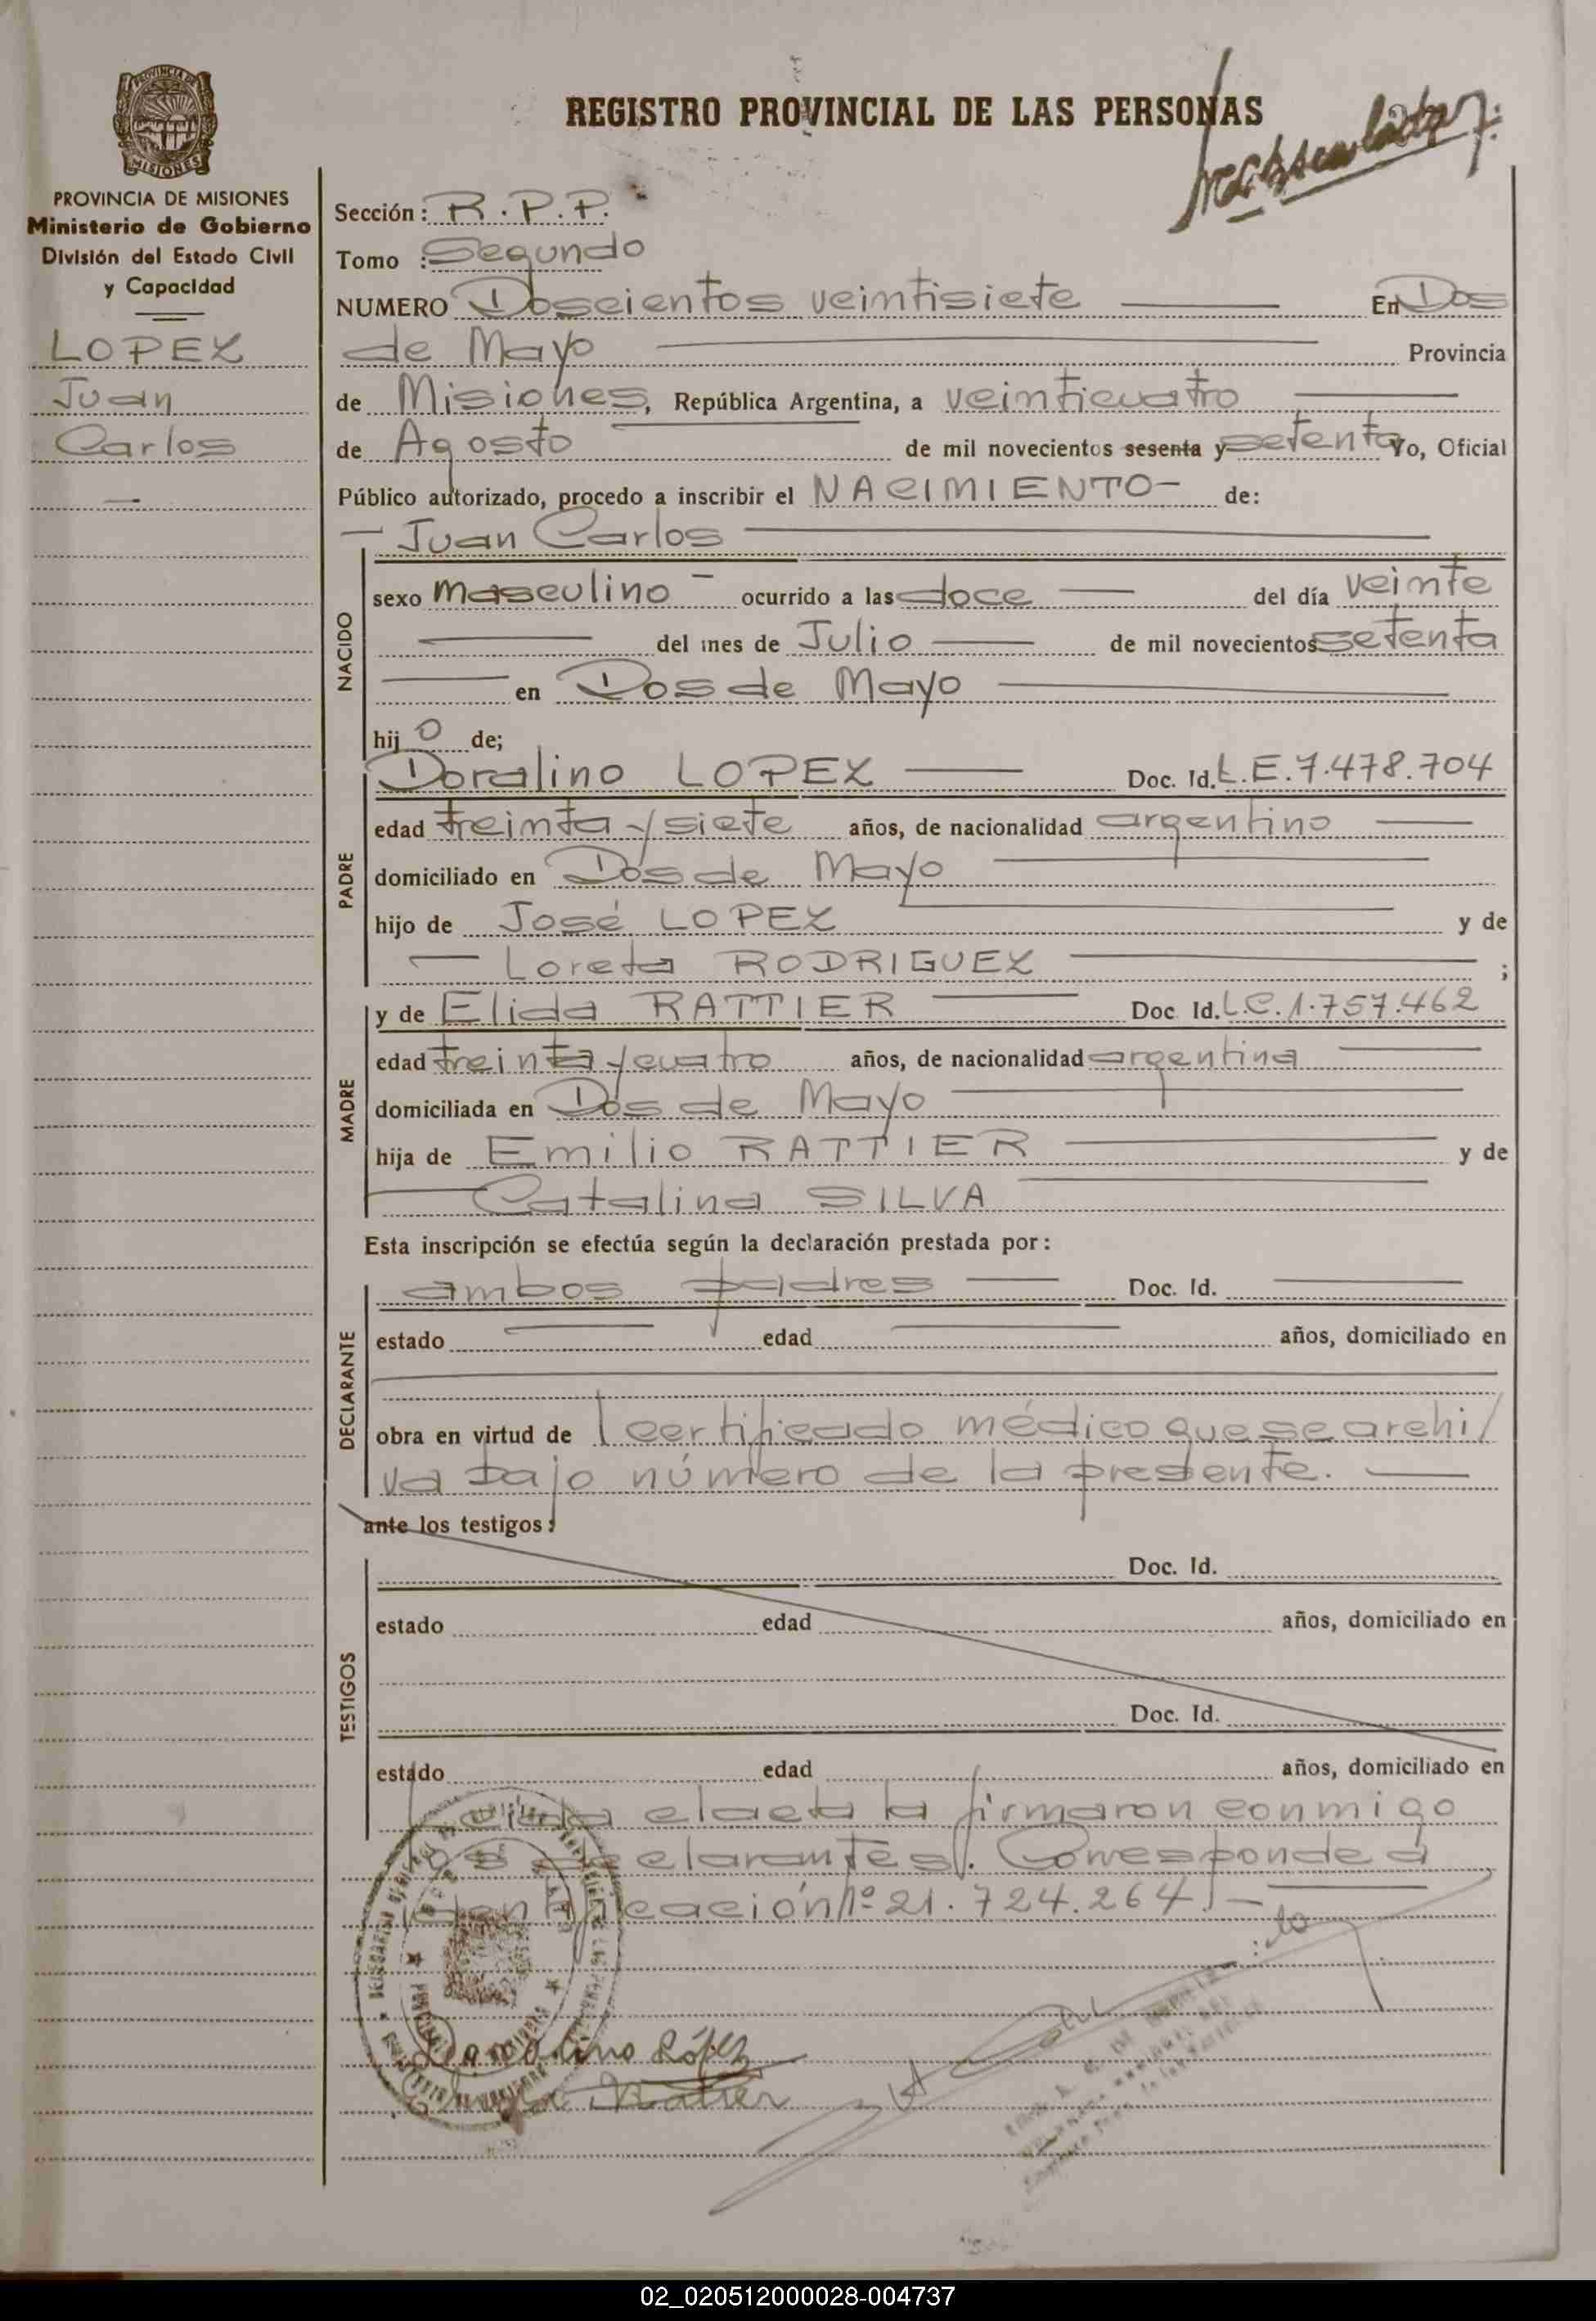 PROVINCIA DE MISIONES
REGISTRO PROVINCIAL DE LAS PERSONAS
PROVINCIA DE MISIONES
Ministerio de Gobierno
División del Estado Civil
y Capacidad
LOPEZ
Juan
Carlos
Sección: R.P.P.
Tomo : Segundo
NUMERO Doscientos veintisiete En Dos
de Mayo Provincia
de Misiones, República Argentina, a veinticuatro
de Agosto de mil novecientos sesenta y setenta Yo, Oficial
Público autorizado, procedo a inscribir el NACIMIENTO- de:
- Juan Carlos
NACIDO
sexo masculino - ocurrido a las doce del día veinte
del mes de Julio de mil novecientos setenta
en Dos de Mayo
hij o de;
PADRE
Doralino LOPEZ Doc. Id. L.E.7.478.704
edad treinta y siete años, de nacionalidad argentino
domiciliado en Dos de Mayo
hijo de José LOPEZ y de
Loreta RODRIGUEZ ;
MADRE
y de Elida RATTIER Doc Id. L.C.1.757.462
edad treinta y cuatro años, de nacionalidad argentina
domiciliada en Dos de Mayo
hija de Emilio RATTIER y de
Catalina SILVA
Esta inscripción se efectúa según la declaración prestada por:
DECLARANTE
ambos padres Doc. Id.
estado edad años, domiciliado en
obra en virtud de certificado médico que se archi/
va bajo número de la presente.
ante los testigos:
TESTIGOS
Doc. Id.
estado edad años, domiciliado en
Doc. Id.
estado edad años, domiciliado en
Leída el acta la firmaron conmigo
los declarantes. Corresponde a
identificación Nº 21.724.264.-
López
Ratier
02_020512000028-004737